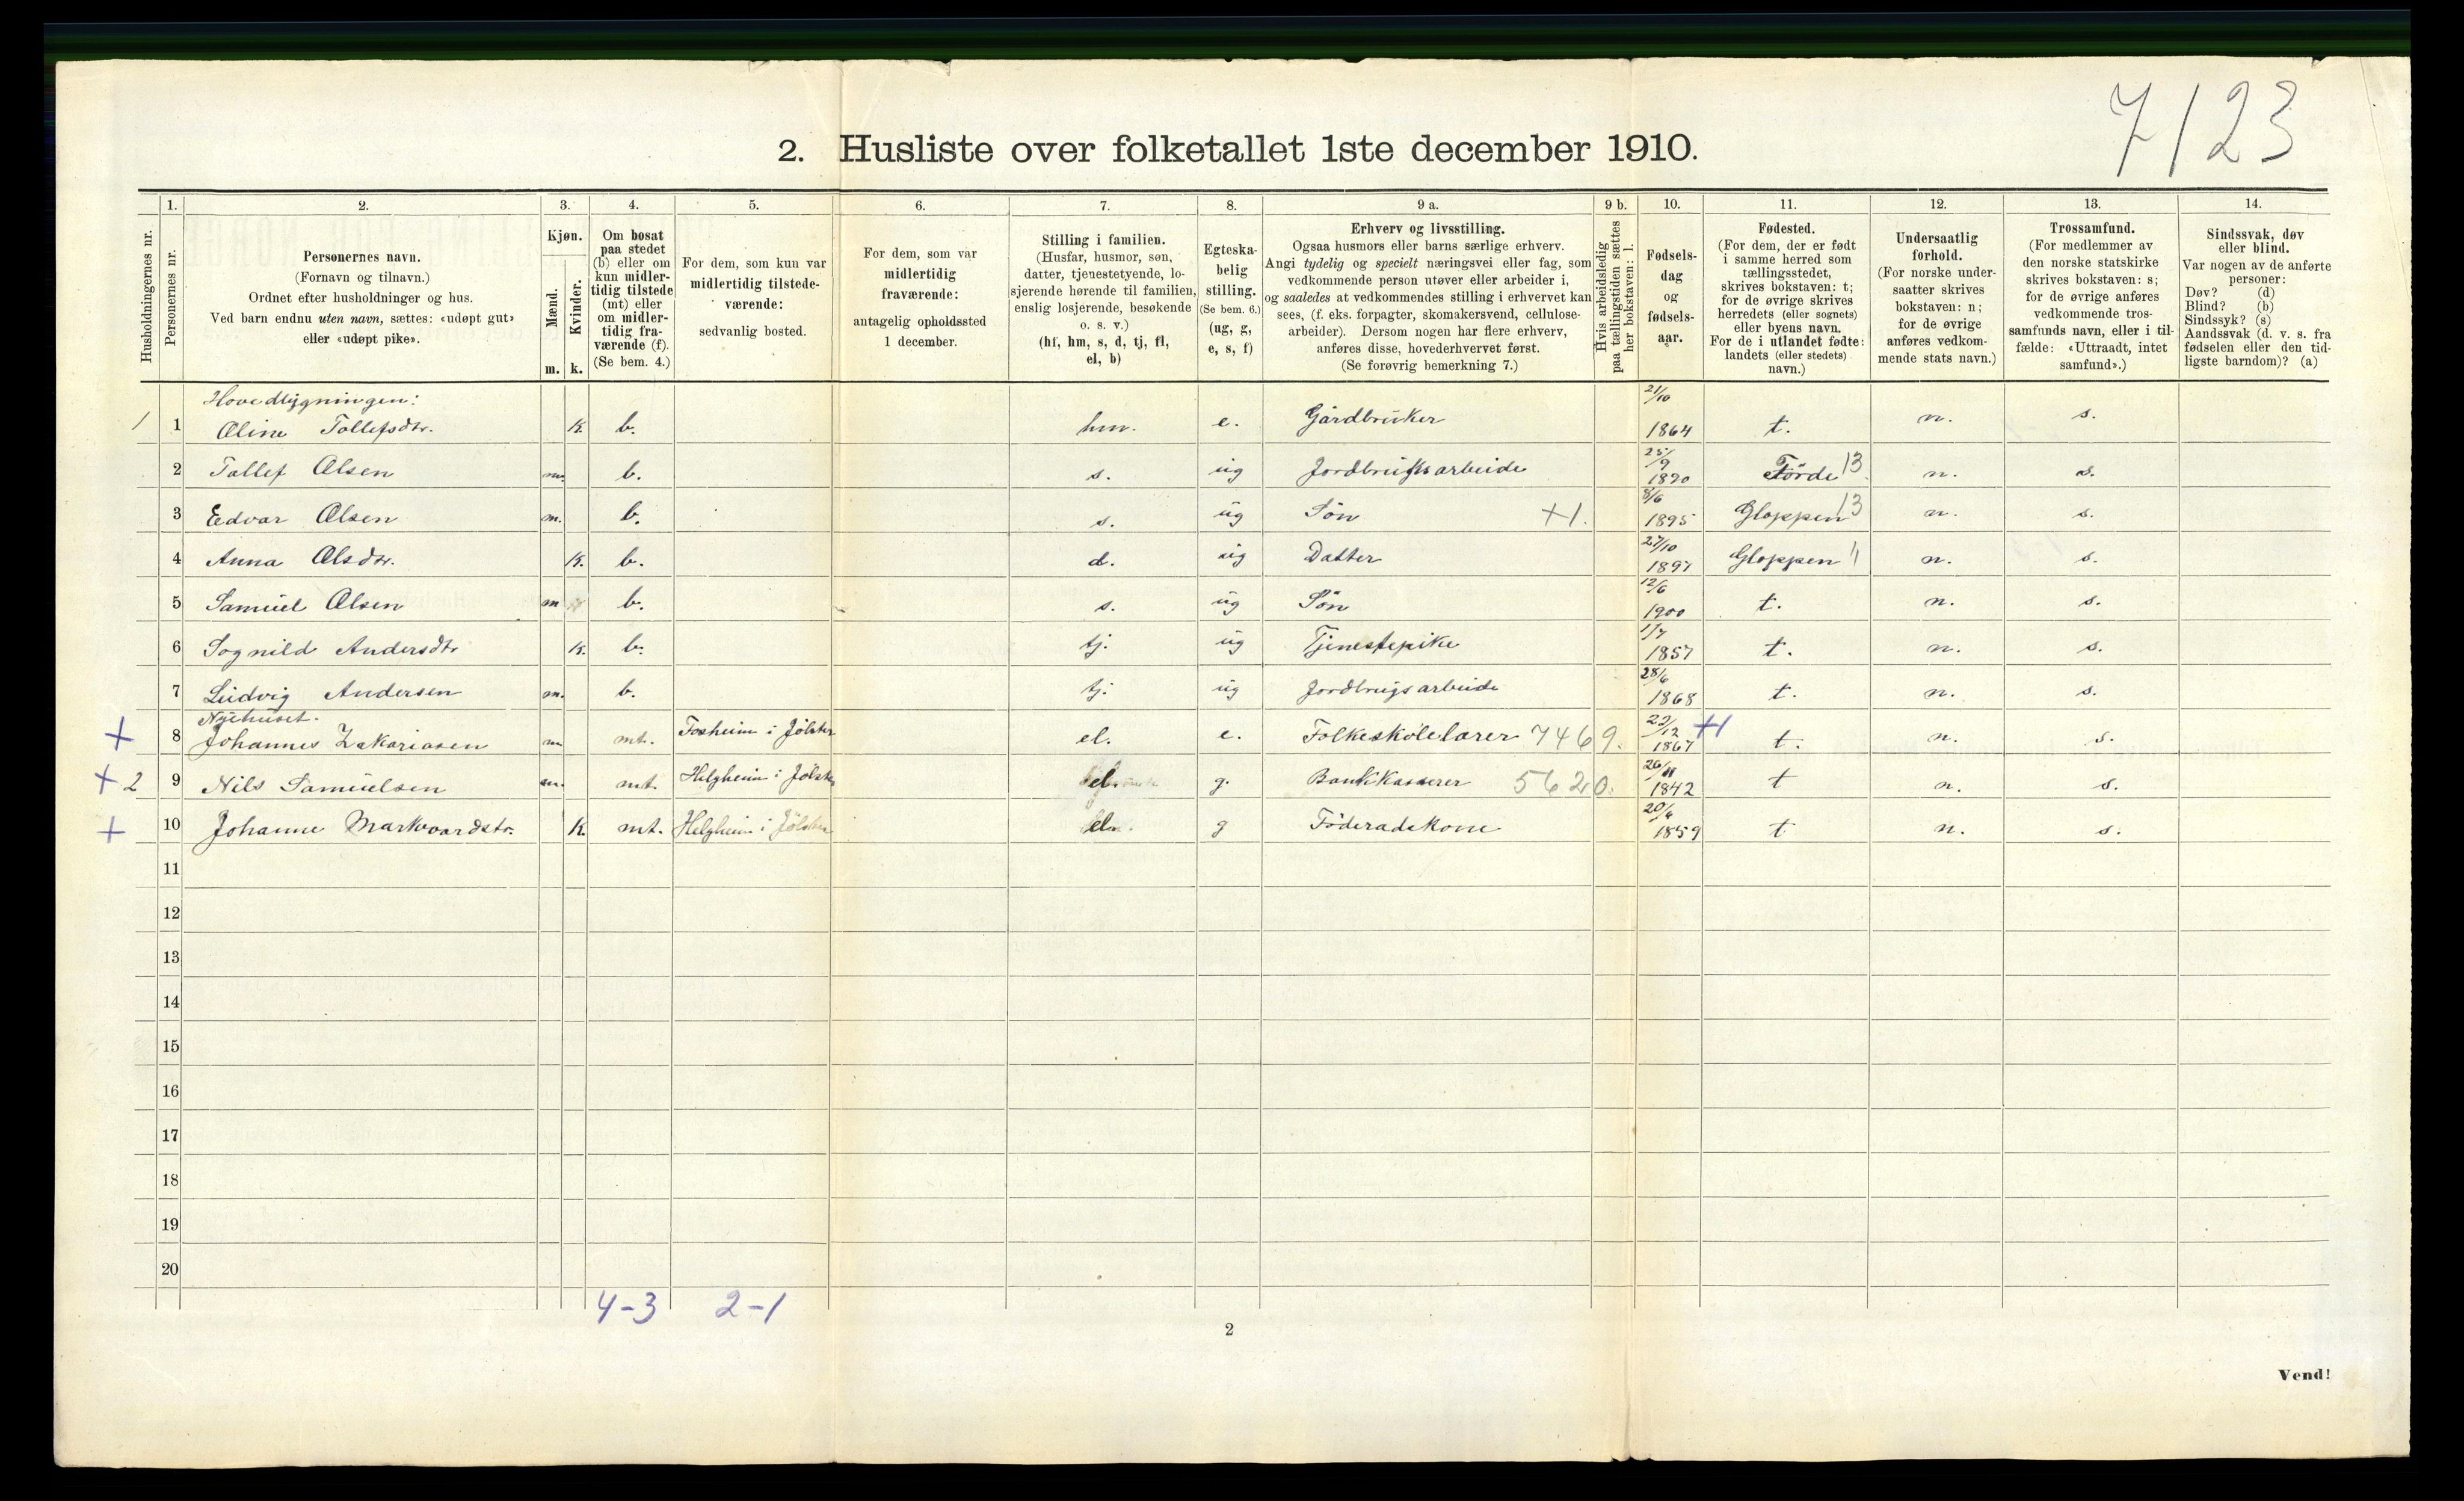 7/23
2. Husliste over folketallet 1ste december 1910.
1. 2. 3. 4. 5. 6. 7. 8. 9 a. 9 b. 10. 11. 12. 13. 14.
Husholdningernes nr.
Personernes nr.
Personernes navn.
(Fornavn og tilnavn.)
Ordnet efter husholdninger og hus.
Ved barn endnu uten navn, sættes: «udøpt gut»
eller «udøpt pike».
Kjøn.
Mænd.
Kvinder.
m. k.
Om bosat
paa stedet
(b) eller om
kun midler-
tidig tilstede
(mt) eller
om midler-
tidig fra-
værende (f).
(Se bem. 4.)
For dem, som kun var
midlertidig tilstede-
værende:
sedvanlig bosted.
For dem, som var
midlertidig
fraværende:
antagelig opholdssted
1 december.
Stilling i familien.
(Husfar, husmor, søn,
datter, tjenestetyende, lo-
sjerende hørende til familien,
enslig losjerende, besøkende
o. s. v.)
(hf, hm, s, d, tj, fl,
el, b)
Egteska-
belig
stilling.
(Se bem. 6.)
(ug, g,
e, s, f)
Erhverv og livsstilling.
Ogsaa husmors eller barns særlige erhverv.
Angi tydelig og specielt næringsvei eller fag, som
vedkommende person utøver eller arbeider i,
og saaledes at vedkommendes stilling i erhvervet kan
sees, (f. eks. forpagter, skomakersvend, cellulose-
arbeider). Dersom nogen har flere erhverv,
anføres disse, hovederhvervet først.
(Se forøvrig bemerkning 7.)
Hvis arbeidsledig
paa tællingstiden sættes
her bokstaven: l.
Fødsels-
dag
og
fødsels-
aar.
Fødested.
(For dem, der er født
i samme herred som
tællingsstedet,
skrives bokstaven: t;
for de øvrige skrives
herredets (eller sognets)
eller byens navn.
For de i utlandet fødte:
landets (eller stedets)
navn.)
Undersaatlig
forhold.
(For norske under-
saatter skrives
bokstaven: n;
for de øvrige
anføres vedkom-
mende stats navn.)
Trossamfund.
(For medlemmer av
den norske statskirke
skrives bokstaven: s;
for de øvrige anføres
vedkommende tros-
samfunds navn, eller i til-
fælde: «Uttraadt, intet
samfund».)
Sindssvak, døv
eller blind.
Var nogen av de anførte
personer:
Døv? (d)
Blind? (b)
Sindssyk? (s)
Aandssvak (d. v. s. fra
fødselen eller den tid-
ligste barndom)? (a)
Hovedbygningen:
1 1 Oline Tollefsdtr. K. b. hm. e. Gårdbruker 21/10 1864 t. n. s.
2 Tollef Olsen m. b. s. ug Jordbruksarbeide 25/9 1890 Förde 13 n. s.
3 Edvar Olsen m. b. s. ug Sön +1. 8/6 1895 Gloppen 13 n. s.
4 Anna Olsdtr. K. b. d. ug Datter 27/10 1897 Gloppen 11 n. s.
5 Samuel Olsen m b. s. ug Sön 12/6 1900 t. n. s.
6 Sognild Andersdtr K. b. tj. ug Tjenestepike 1/7 1857 t. n. s.
7 Ludvig Andersen m. b. tj. ug Jordbrugsarbeide 28/6 1868 t. n. s.
Nyehuset.
+ 8 Johannes Zakariasen m mt. Fosheim i Jölster el. e. Folkeskolelærer 7469. 22/12 1867 +1 t. n. s.
+ 2 9 Nils Samuelsen m. mt. Helgheim i Jölster el. g. Bankkasserer 5620. 26/11 1842 t n. s.
+ 10 Johanne Markvardstr. K. mt. Helgheim i Jölster el. g Föderadskone 20/4 1859 t n. s.
11
12
13
14
15
16
17
18
19
20
4-3 2-1
2
Vend!